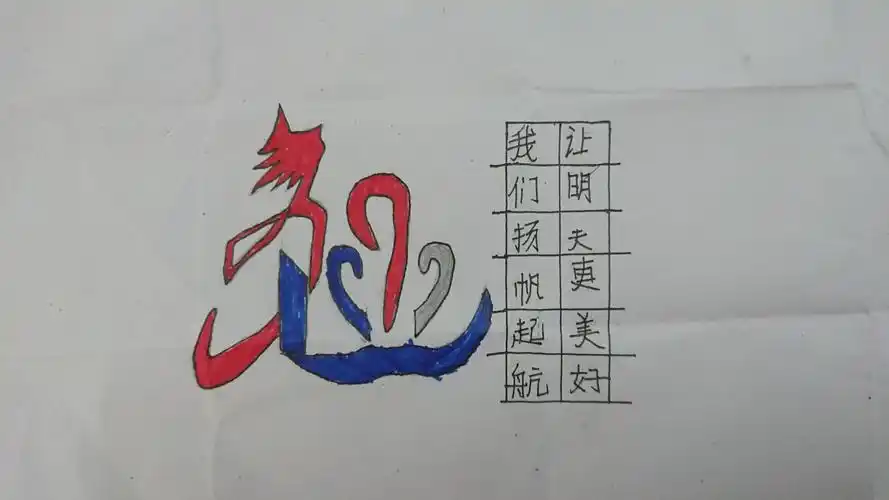 我们扬帆起航
让明夫更美好